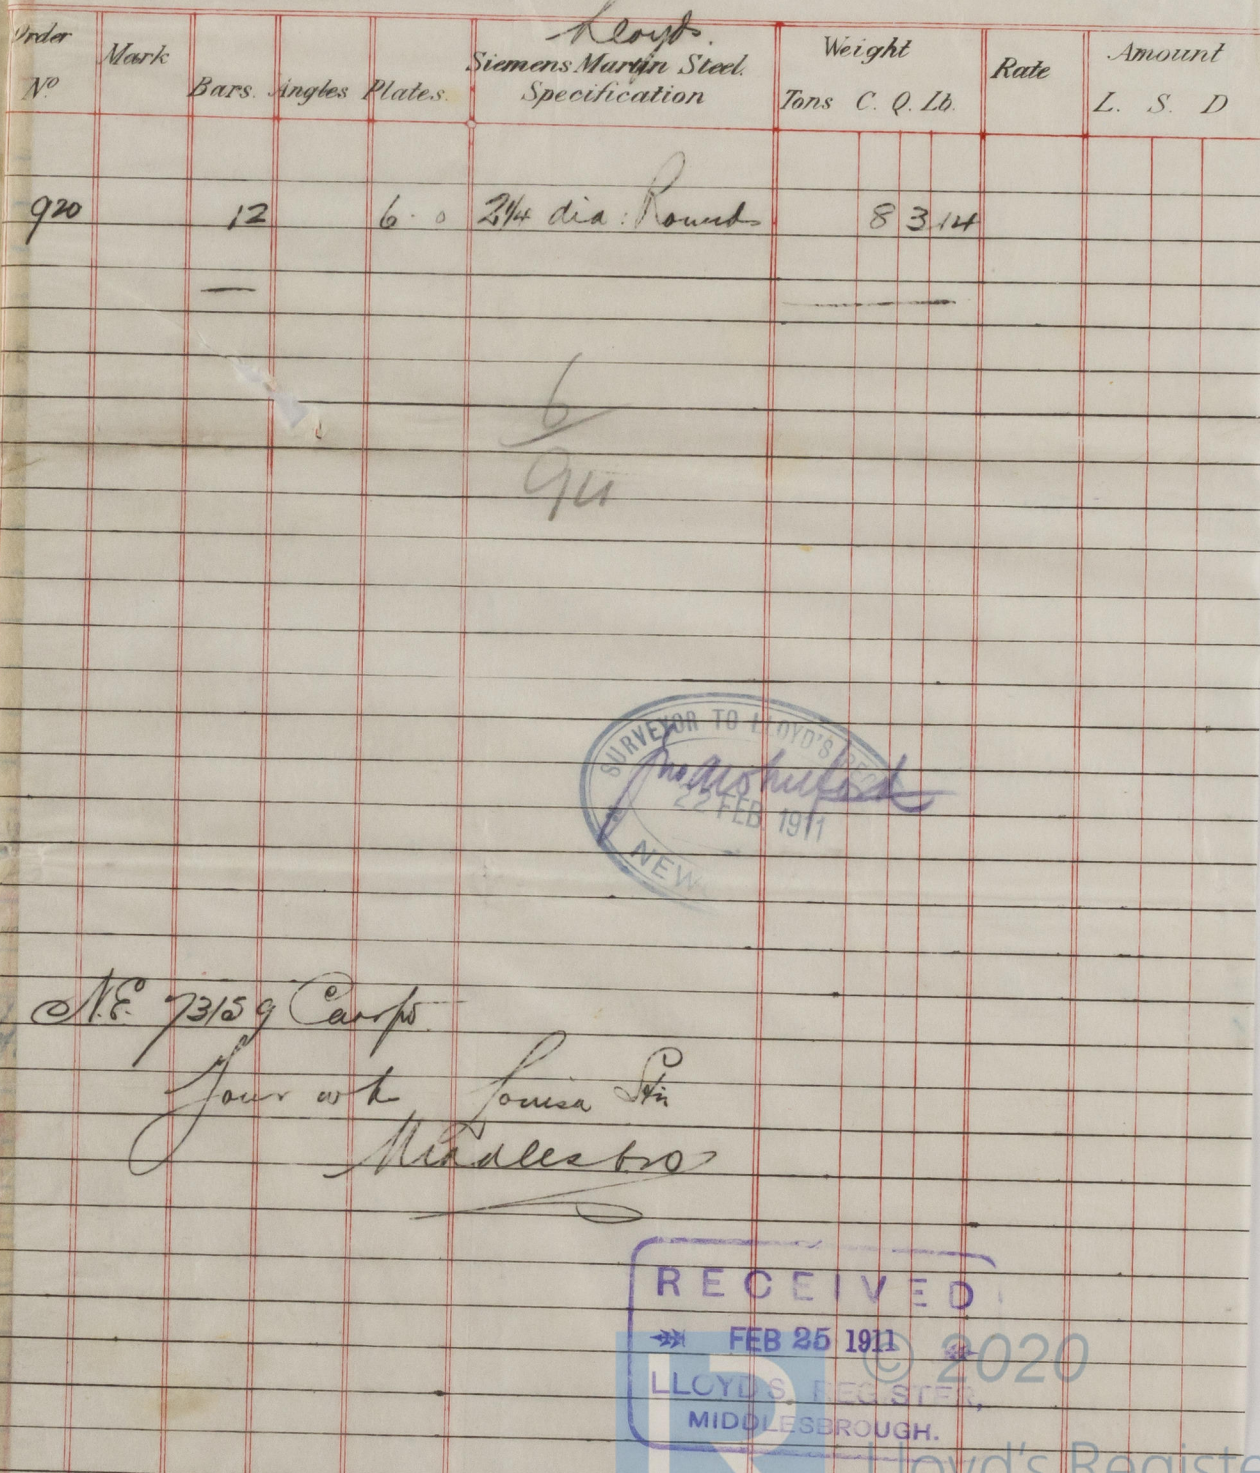 Lloyds.
Order No Mark Bars. Angles Plates. Siemens Martin Steel. Specification Weight Tons C. Q. Lb. Rate Amount L. S. D
920 12 6 - 0 2¼ dia: Rounds 8 3 14
6
SURVEYOR TO LLOYD'S
22 FEB 1911
NEW
N.E. 73159
Your Louisa Stn
Middlesbro
RECEIVED
FEB 25 1911
LLOYD'S REGISTER,
MIDDLESBROUGH.
© 2020
Lloyd's Registe